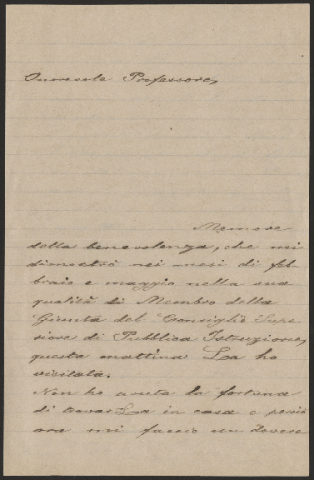 Onorevole Professore,
Memore
della benevolenza, che mi
dimostrò nei mesi di feb
braio e maggio nella sua
qualità di Membro della
Giunta del Consiglio Supe
riore di Pubblica Istruzione,
questa mattina La ho
visitata.
Non ho avuta la fortuna
di trovarLa in casa e perciò
ora mi faccio un dovere